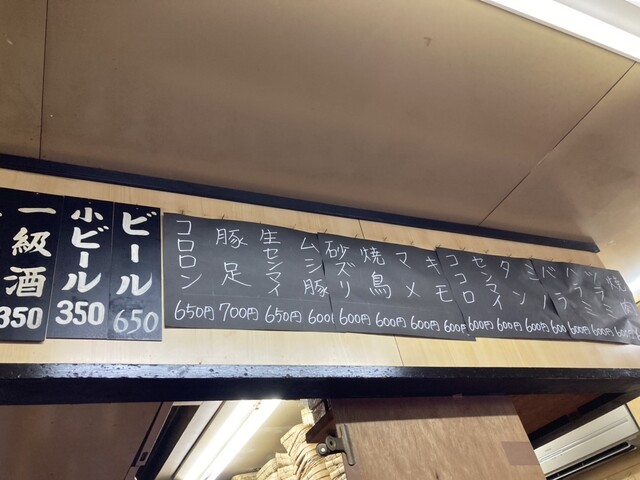 一級酒 350
小ビール 350
ビール 650
コロロン 650円
豚足 700円
生センマイ 650円
ムシ豚 600円
砂ズリ 600円
焼鳥 600円
マメ 600円
キモ 600円
ココロ 600円
センマイ 600円
タン 600円
ミノ 600
バラ 600円
ハラミ 600円
ツラミ 600円
焼肉 600円